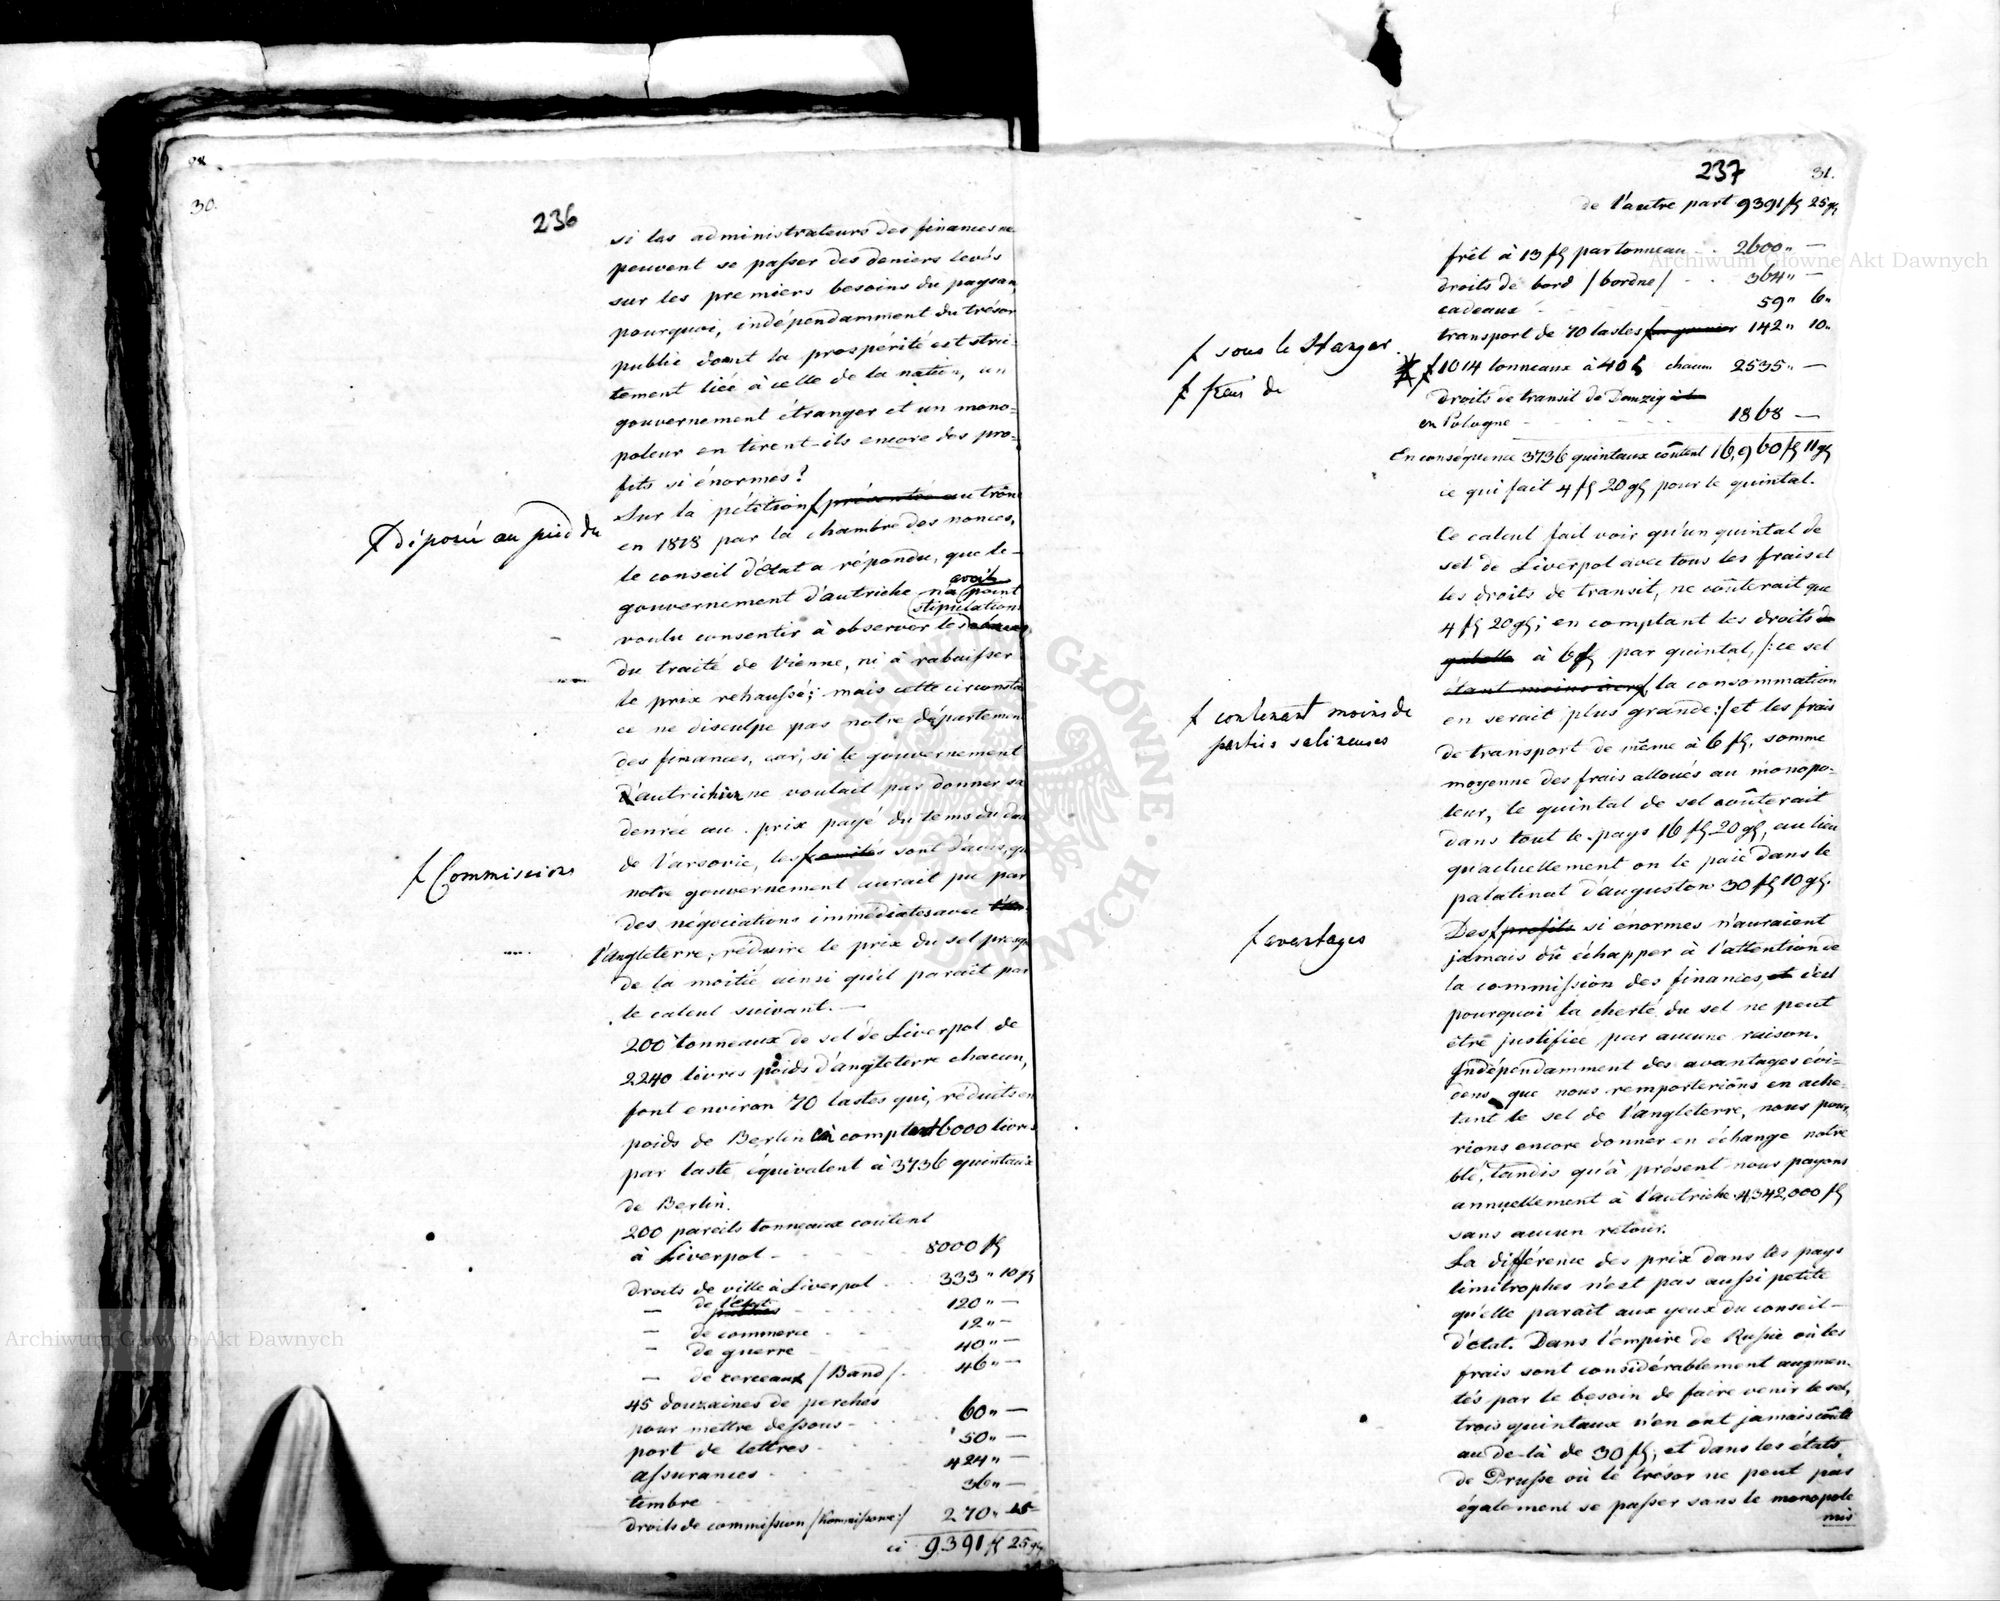 28.
30.
236
si les administrateurs des finances ne
peuvent se passer des deniers levés
sur les premiers besoins du paysan,
pourquoi, indépendamment du trésor
public dont la prospérité est stric-
tement liée à celle de la nation, un
gouvernement étranger et un mono-
poleur en tirent-ils encore des pro-
fits si énormes?
Sur la pétition présentée au trône
Déposée au pied du
en 1818 par la chambre des nonces,
le conseil d'Etat a répondu, que le
avoit
gouvernement d'autriche n'a point
stipulations
voulu consentir à observer les
du traité de Vienne, ni à rabaisser
le prix rehaussé; mais cette circonstan
ce ne disculpe pas notre département
des finances, car, si le gouvernement
d'autrichien ne voulait pas donner sa
denrée au prix payé du tems du du
de Varsovie, les comités sont d'avis, qu
Commissions
notre gouvernement aurait pu par
des négociations immédiates avec
l'angleterre, réduire le prix du sel presqu
de la moitié ainsi qu'il parait par
le calcul suivant. —
200 tonneaux de sel de Liverpol de
2240 livres poids d'angleterre chacun,
font environ 70 lastes qui, réduits en
poids de Berlin à compter 6000 livres
par laste équivalent à 3736 quintaux
de Berlin.
200 pareils tonneaux coutent
à Liverpol - 8000 fl
droits de ville à Liverpol 333 " 10 gl
— de l'état 120 " —
— de commerce 12 " —
— de guerre 40 " —
— de cerceaux /Band/ 46 " —
45 douzaines de perches
pour mettre dessous - 60 " —
port de lettres 50 " —
assurances 424 " —
timbre 36 " —
droits de commission /Kommissowe/ 270 " 15
ci 9391 fl 25 gl
237
31.
de l'autre part 9391 fl 25 gl
frêt à 13 fl par tonneau 2600 " —
droits de bord /bordne/ 364 " —
cadeaux 59 " 6 "
transport de 70 lastes 142 " 10 "
sous le Hangar
1014 tonneaux à 40 chacun 2535 " —
frais de
droits de transit de Danzig
en Pologne 1868 —
En conséquence 3736 quintaux coûtent 16,960 fl 11 gl
ce qui fait 4 fl 20 gl pour le quintal.
Ce calcul fait voir qu'un quintal de
sel de Liverpol avec tous les frais et
les droits de transit, ne coûterait que
4 fl 20 gl; en comptant les droits de
gabelle à 6 fl par quintal, /: ce sel
étant moins la consommation
contenant moins de
parties salineuses
en serait plus grande :/ et les frais
de transport de même à 6 fl, somme
moyenne des frais alloués au monopo-
leur, le quintal de sel coûterait
dans tout le pays 16 fl 20 gl, au lieu
qu'actuellement on le paie dans le
palatinat d'augustow 30 fl 10 gl.
Des profits si énormes n'auraient
avantages
jamais dû échapper à l'attention de
la commission des finances, et c'est
pourquoi la cherté du sel ne peut
être justifiée par aucune raison.
Indépendamment des avantages évi-
dens que nous remporterions en ache-
tant le sel de l'angleterre, nous pour
rions encore donner en échange notre
blé, tandis qu'à présent nous payons
annuellement à l'autriche 4,342,000 fl
sans aucun retour.
La différence des prix dans les pays
limitrophes n'est pas aussi petite
qu'elle parait aux yeux du conseil
d'état. Dans l'empire de Russie où les
frais sont considérablement augmen-
tés par le besoin de faire venir le sel,
trois quintaux n'en ont jamais coûté
au de-là de 30 fl, et dans les états
de Prusse où le trésor ne peut pas
également se passer sans le monopole
mis
Archiwum Główne Akt Dawnych
Archiwum Główne Akt Dawnych
ARCHIWUM GŁÓWNE AKT DAWNYCH